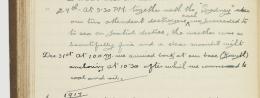 " 29th at 3.30 PM. together with the "Sydney" and
our two attendant destroyers we proceeded to
to sea on patrol duties, the weather was
beautifully fine and a clear moonlit night
Dec 31st at 10 AM we arrived back at our base
anchoring at 10.30 after which we commenced to
coal and
1917